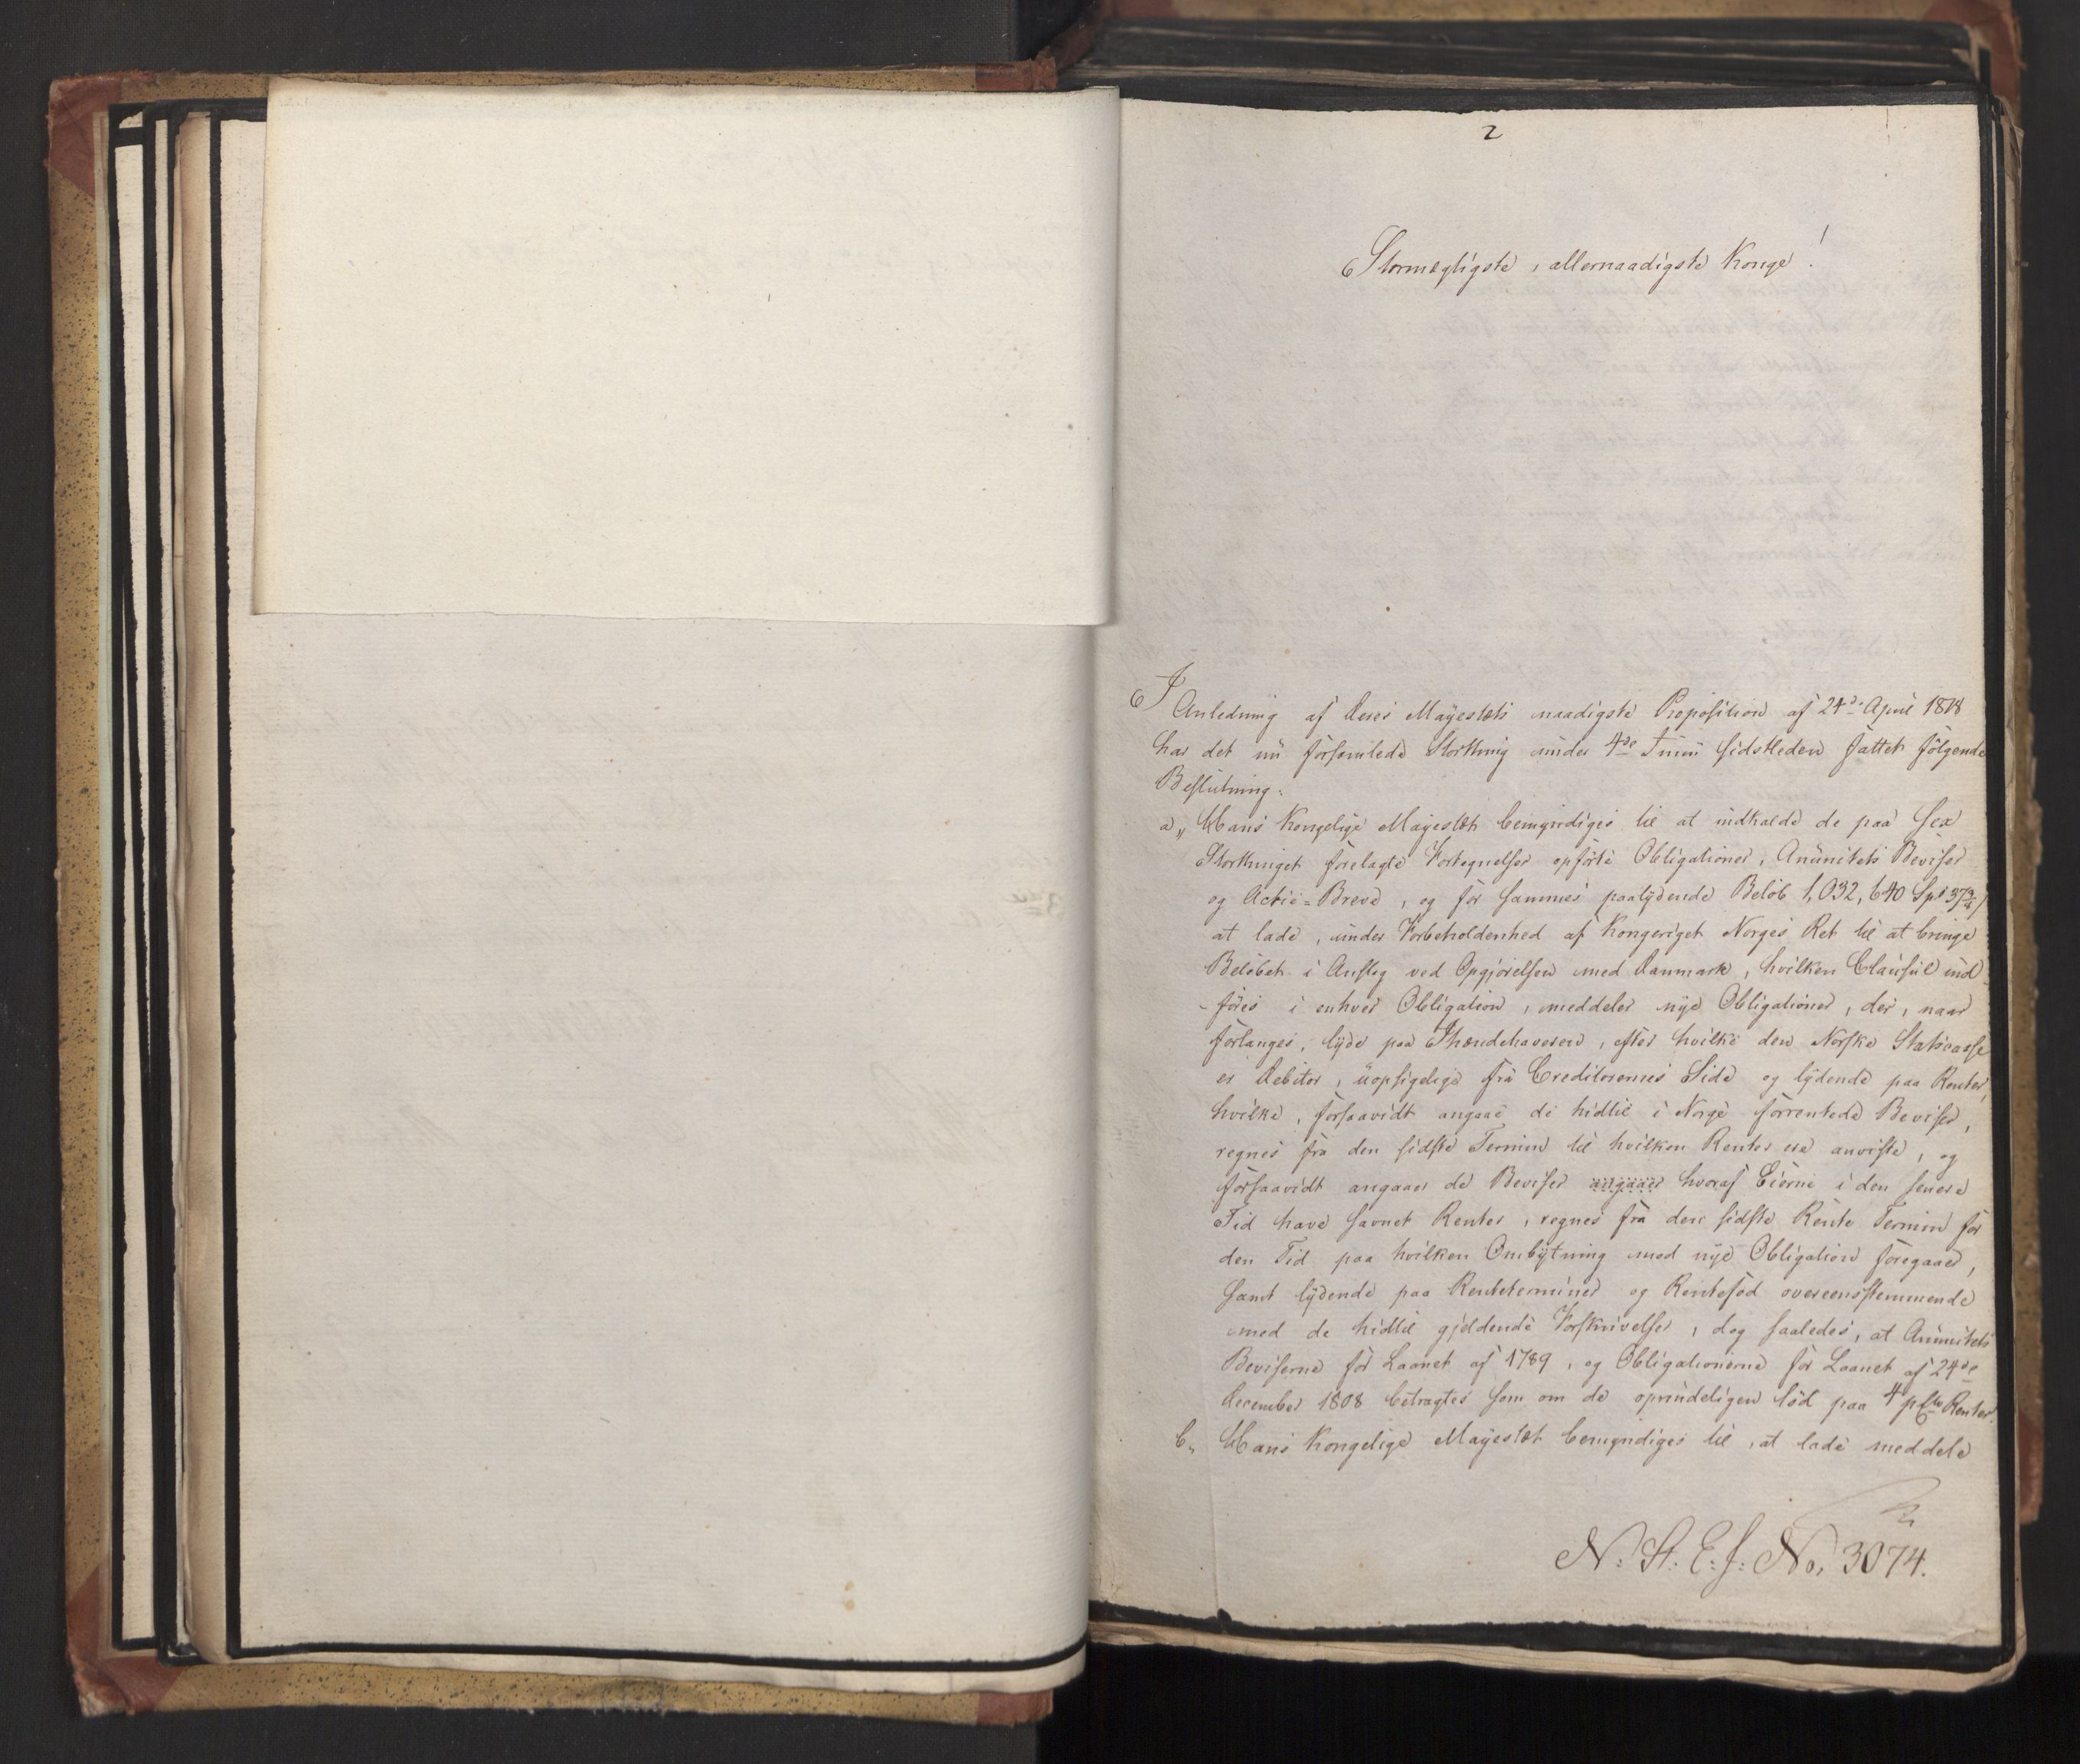 2
Stormægtigste, allernaadigste Konge!
I Anledning af Deres Majestæts naadigste Proposition af 24de April 1818
har det nu forsamlede Storthing under 4de Junii sidstleden fattet følgende
Beslutning:
a,, Hans Kongelige Majestæt bemyndiges til at indkalde de paa Sex
Storthinget forelagte Fortegnelser opførte Obligationer, Anuitets Beviser
og Actie=Breve, og for sammes paalydende Beløb 1,032,640 Spd
at lade, under Forbeholdenhed af Kongeriget Norges Ret til at bringe
Beløbet i Anslag ved Opgjørelsen med Danmark, hvilken Clausul ind-
-føres i enhver Obligation, meddeles nye Obligationer, der, naar
forlanges, lyde paa Ihændehaveren, efter hvilke den Norske Statscasse
er Debitor, uopsigelige fra Creditorernes Side og lydende paa Renter,
hvilke, forsaavidt angaae de hidtil i Norge forrentede Beviser,
regnes fra den sidste Termin til hvilken Renter ere anviste, og
forsaavidt angaaer de Beviser angaaer hvoraf Eierne i den senere
Tid have savnet Renter, regnes fra den sidste Rente Termin før
den Tid paa hvilken Ombytning med nye Obligation foregaaer,
samt lydende paa Renteterminer og Rentefod overeensstemmende
med de hidtil gjeldende Forskrivelser, dog saaledes, at Anuitets
Beviserne for Laanet af 1789, og Obligationerne for Laanet af 24de
December 1808 betragtes som om de oprindeligen lød paa 4 pCto Renter.
b,, Hans Kongelige Majestæt bemyndiges til, at lade meddele
N: St: E: f: No, 3074.